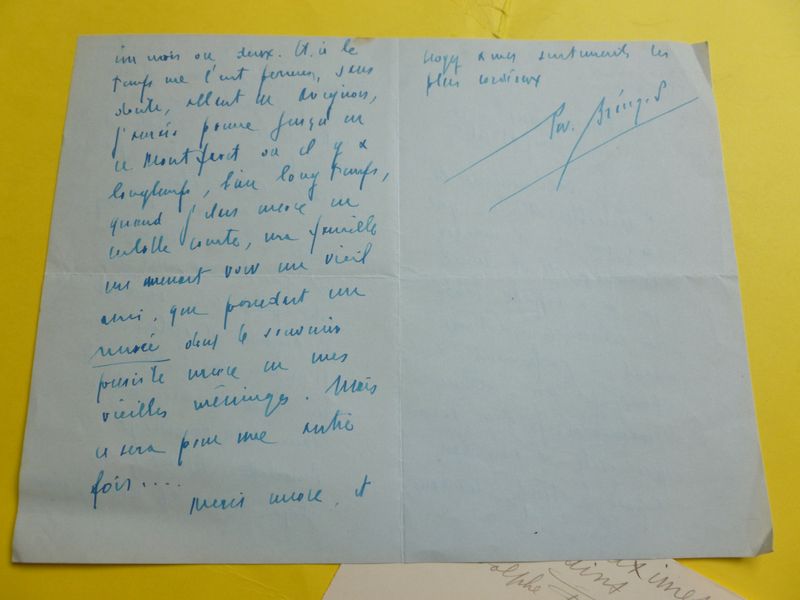 un mois ou deux. Et, si le
temps me l'est permis, sans
doute, allant en Avignon,
j'aurais poussé jusqu'en
ce Montfavet où il y a
longtemps, bien longtemps,
quand j'étais encore en
culotte courte, ma famille
me menait voir un vieil
ami, qui possédait un
musée dont le souvenir
persiste encore en mes
vieilles méninges. Mais
ce sera pour une autre
fois....
Merci encore, et
croyez à mes sentiments les
plus cordiaux